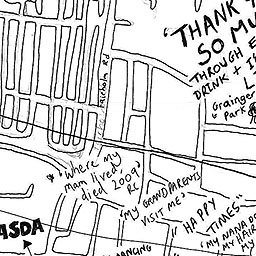 "THANK
SO MU
THROUGH
DRINK +
Grainger
Park
Fairholm Rd
* "where my
Mam lived/
died 2009"
RC
"MY GRANDPARENTS
VISIT ME"
"HAPPY
TIMES"
"MY NANA
MY HAIR
MY
ASDA